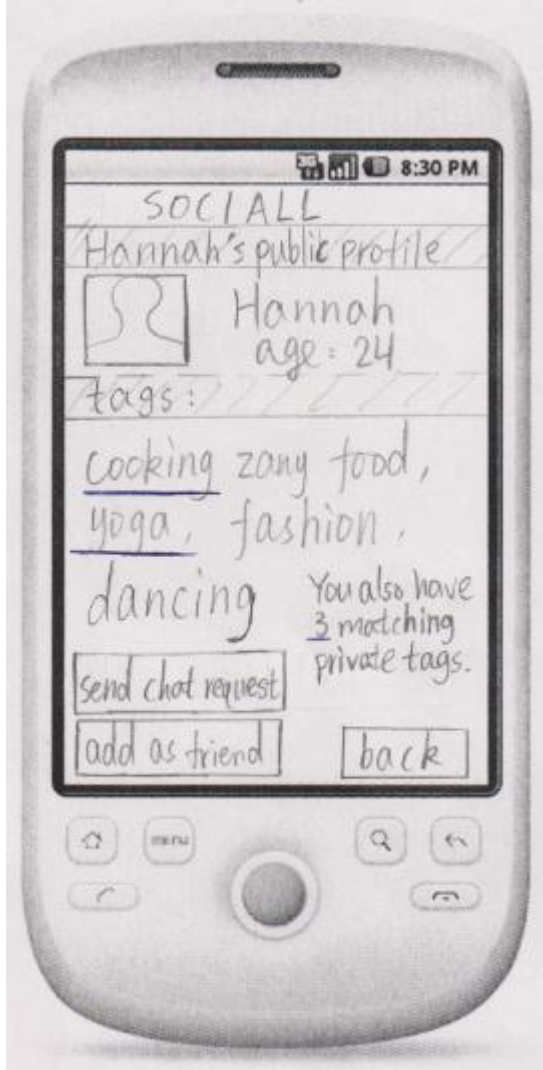 3G
8:30 PM
SOCIALL
Hannah's public profile
Hannah
age: 24
tags:
cooking zany food,
yoga, fashion,
dancing
You also have
3 matching
private tags.
send chat request
add as friend
back
menu